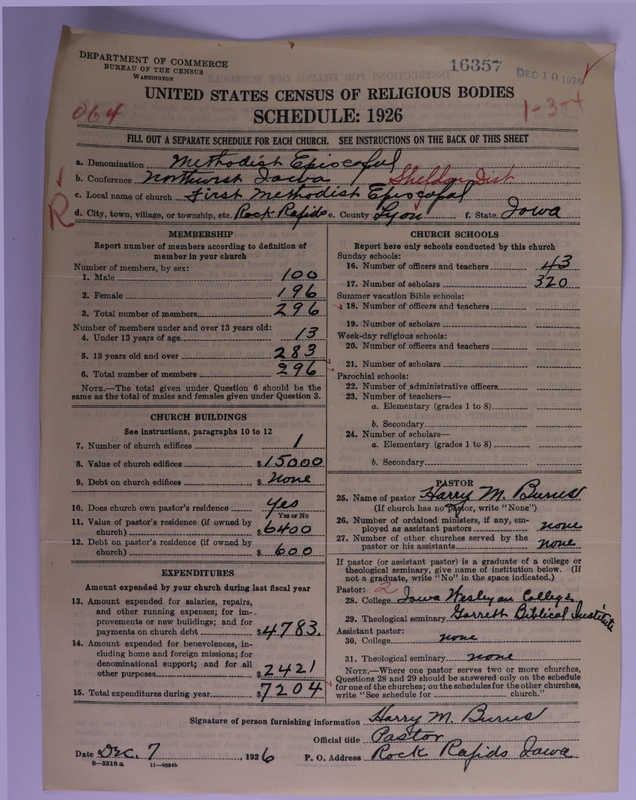 DEPARTMENT OF COMMERCE
BUREAU OF THE CENSUS
WASHINGTON
16357
DEC 10 1926
UNITED STATES CENSUS OF RELIGIOUS BODIES
064
SCHEDULE: 1926
1-3-4
FILL OUT A SEPARATE SCHEDULE FOR EACH CHURCH. SEE INSTRUCTIONS ON THE BACK OF THIS SHEET
a. Denomination Methodist Episcopal
b. Conference Northwest Iowa Sheldon Dist
c. Local name of church First Methodist Episcopal
R
d. City, town, village, or township, etc. Rock Rapids e. County Lyon f. State Iowa
MEMBERSHIP
Report number of members according to definition of
member in your church
Number of members, by sex:
1. Male 100
2. Female 196
3. Total number of members 296
Number of members under and over 13 years old:
4. Under 13 years of age 13
5. 13 years old and over 283
6. Total number of members 296
NOTE.—The total given under Question 6 should be
same as the total of males and females given under Question 3.
CHURCH BUILDINGS
See instructions, paragraphs 10 to 12
7. Number of church edifices 1
8. Value of church edifices $15000
9. Debt on church edifices $ None
10. Does church own pastor's residence Yes
Yes or No
11. Value of pastor's residence (if owned by
church) $6400
12. Debt on pastor's residence (if owned by
church) $ 600
EXPENDITURES
Amount expended by your church during last fiscal year
13. Amount expended for salaries, repairs,
and other running expenses; for im-
provements or new buildings; and for
payments on church debt $4783.
14. Amount expended for benevolences, in-
cluding home and foreign missions; for
denominational support; and for all
other purposes $2421
15. Total expenditures during year $7204
CHURCH SCHOOLS
Report here only schools conducted by this church
Sunday schools:
16. Number of officers and teachers 43
17. Number of scholars 320
Summer vacation Bible schools:
18. Number of officers and teachers
19. Number of scholars
Week-day religious schools:
20. Number of officers and teachers
21. Number of scholars
Parochial schools:
22. Number of administrative officers
23. Number of teachers—
a. Elementary (grades 1 to 8)
b. Secondary
24. Number of scholars—
a. Elementary (grades 1 to 8)
b. Secondary
PASTOR
25. Name of pastor Harry M. Burns
(If church has no pastor, write "None")
26. Number of ordained ministers, if any, em-
ployed as assistant pastors none
27. Number of other churches served by the
pastor or his assistants none
If pastor (or assistant pastor) is a graduate of a college or
theological seminary, give name of institution below. (If
not a graduate, write "No" in the space indicated.)
Pastor: 2
28. College Iowa Wesleyan College
29. Theological seminary Garrett Biblical Institute
Assistant pastor:
30. College none
31. Theological seminary none
NOTE.—Where one pastor serves two or more churches,
Questions 28 and 29 should be answered only on the schedule
for one of the churches; on the schedules for the other churches,
write "See schedule for church."
Signature of person furnishing information Harry M. Burns
Official title Pastor
Date Dec. 7, 1926 P. O. Address Rock Rapids Iowa